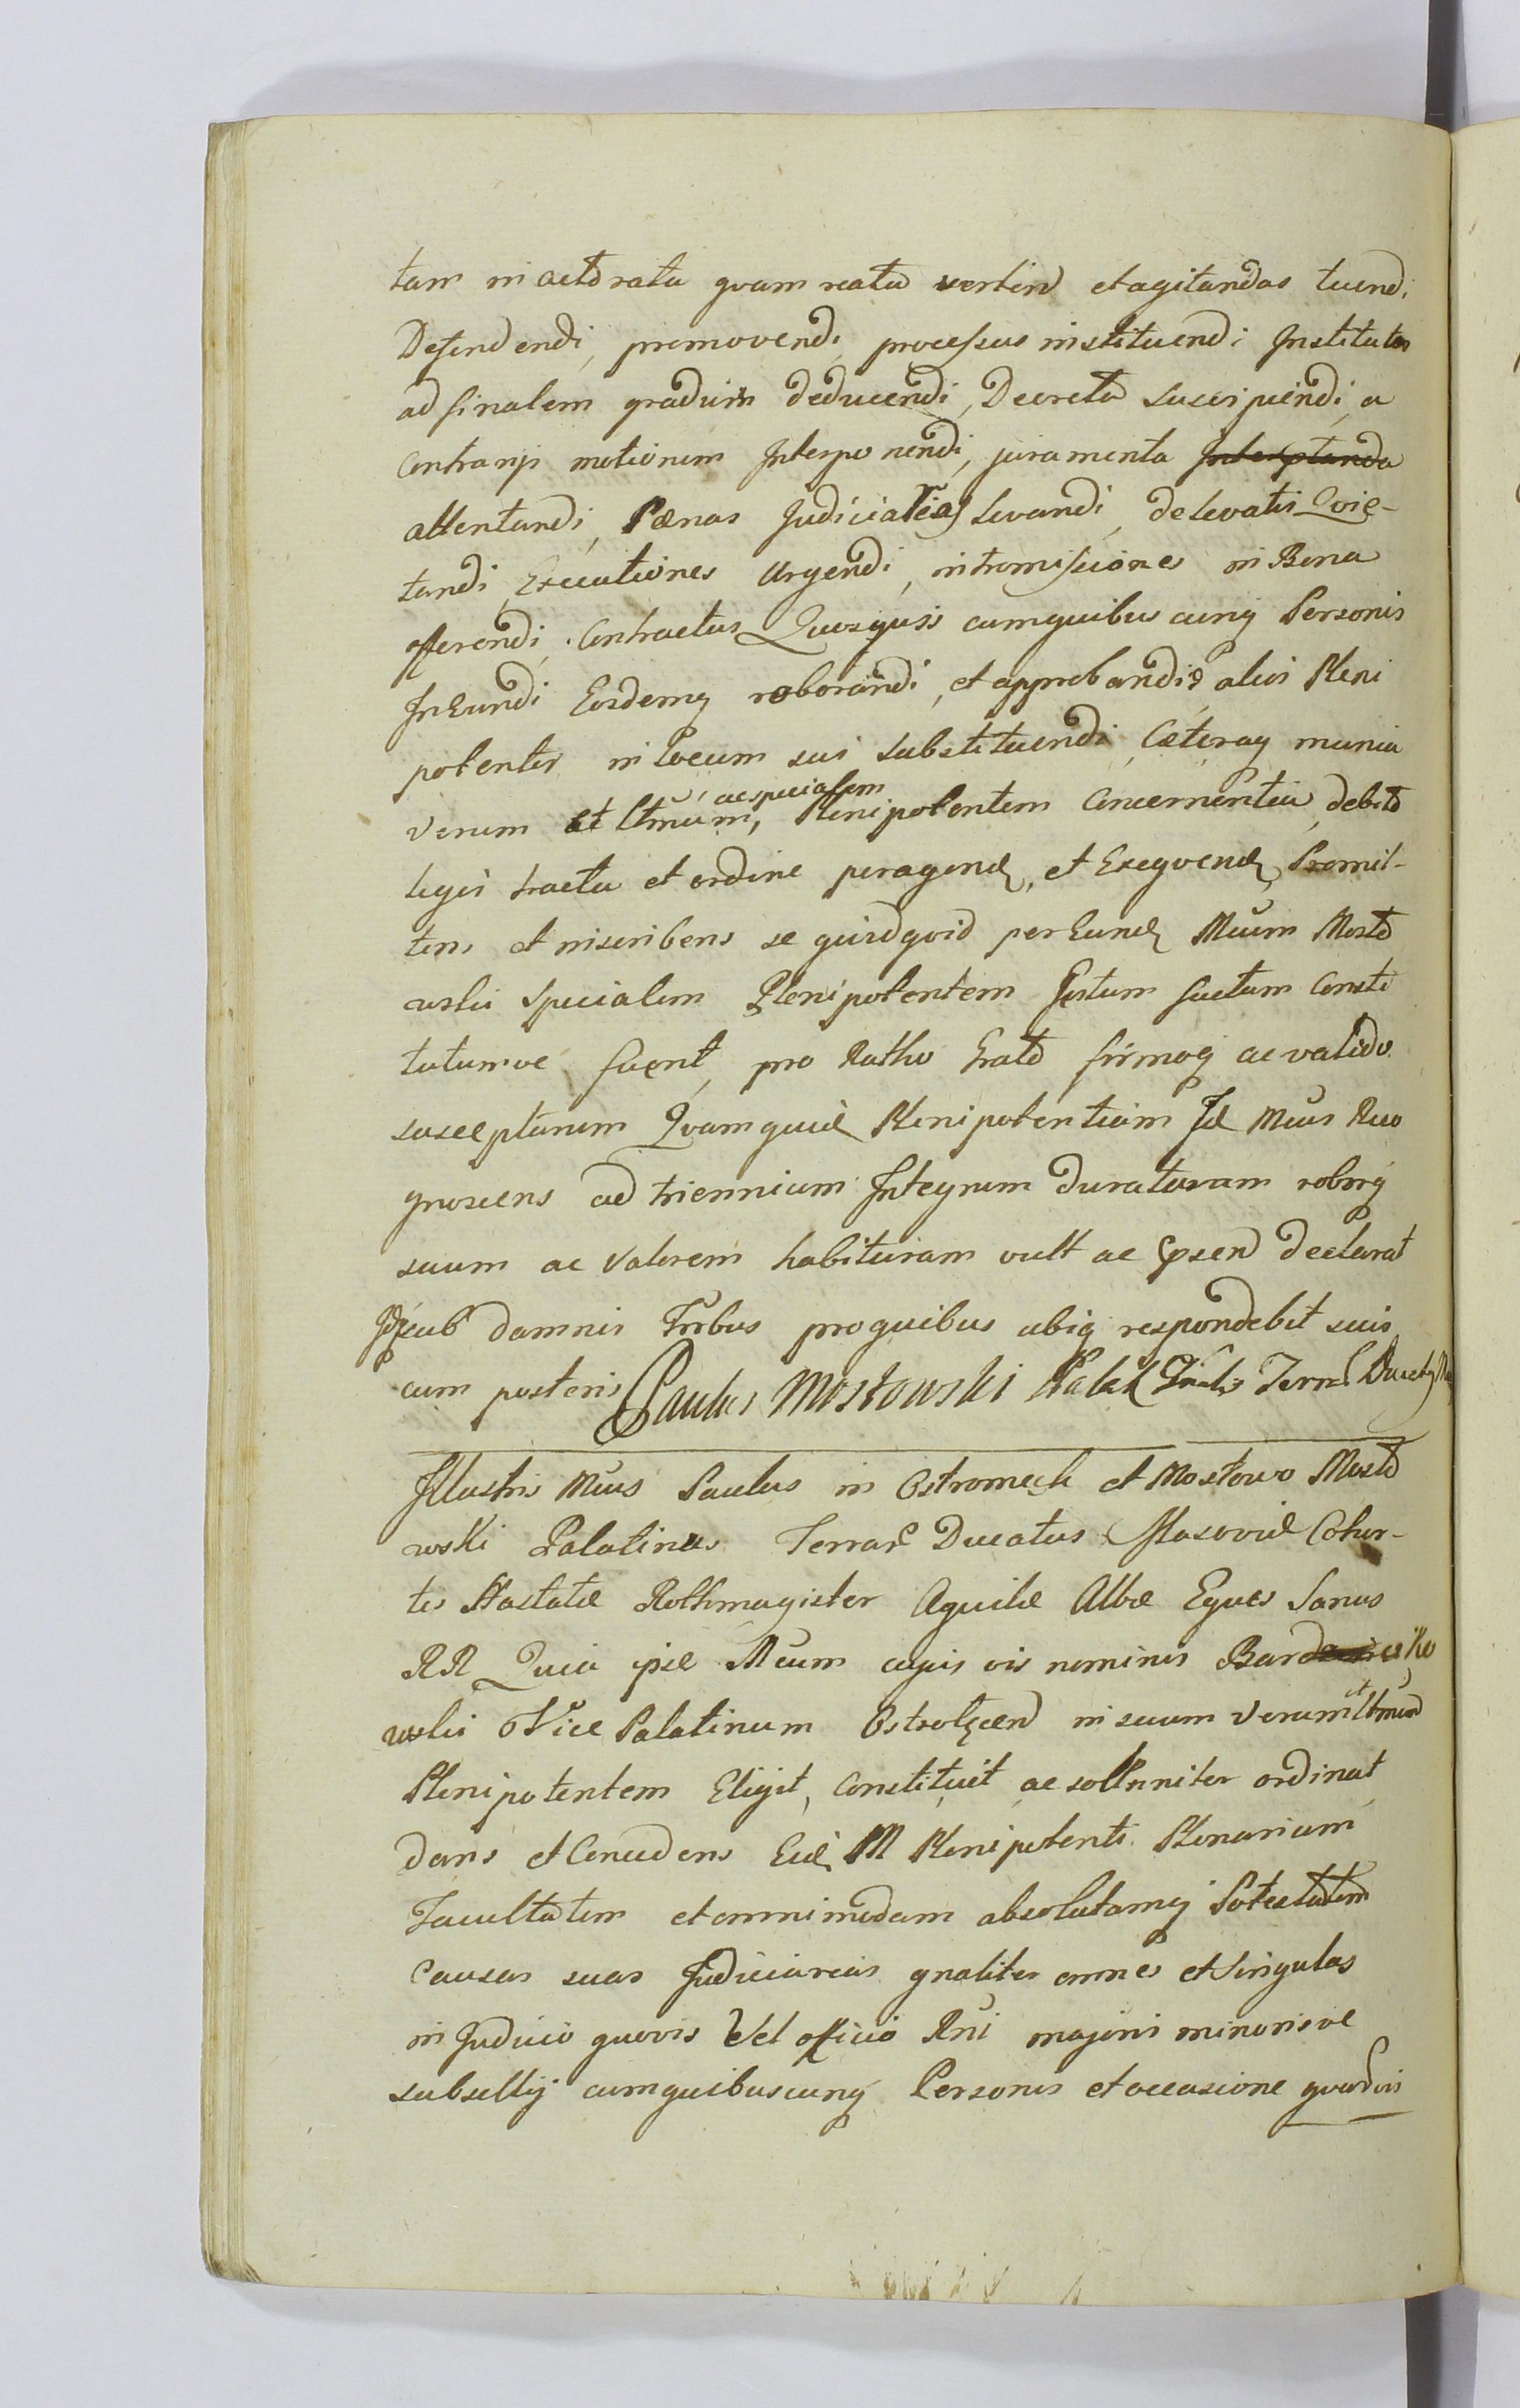 tam in actoratu quam reatu vertend et agitandas tuendi
Defendendi, promovendi, processus instituendi Institutos
ad finalem gradum deducendi, Decreta suscipiendi, a
contrarijs motionem Interponendi, juramenta
attentandi, Pænas Judiciarias levandi, de levatis Qvie-
tandi, Executiones Urgendi, intromissiones in Bona
offerendi, Contractus Quosquis cum quibus cunq Personis
Ineundi Eosdemq roborandi, et approbandi, alios Pleni
potentes in locum sui substituendi, Cæteraq munia
ac specialem
verum et Ltmum, Plenipotentem Concernentia, debito
legis tractu et ordine peragend, et Exeqvend, Promit-
tens et inscribens se quidqvid per Eund Mcum Mosto
wski Specialem Plenipotentem Gestum factum Consti
tutumve fuerit, pro Ratho Grato firmoq ac valido
suscepturum Qvamquid Plenipotentiam Id Mcus Reco
gnoscens ad triennium Integrum duraturam roborq
suum ac Valorem habituram vult ac Expsend declarat
Idq sub damnis Trbus pro quibus ubiq respondebit suis
cum posteris Paulus Mostowski Palat Gnalis Terrar Ducatq
Illustris Mcus Paulus in Ostromech et Mostowo Mosto
wski Palatinus Terrar Ducatus Masoviæ Cohor-
tis Hastatæ Rothmagister Aquilæ Albæ Eques Sanus
RR Quia ipse Mcum cujus vis nominis Bardzikow
wski Vice Palatinum Ostrolęcen in suum verum et Ltmum
Plenipotentem Eligit, Constituit ac sollnniter ordinat
dans et Concedens Eid M Plenipotenti Plenariam
Facultatem et omnimodam absolutamq Potestatem
Causas suas Judiciarias gnaliter omnes et Singulas
in Judicio quovis Vel officio Rni majoris minorisve
subsellij cum quibuscunq Personis et occasione quadvis